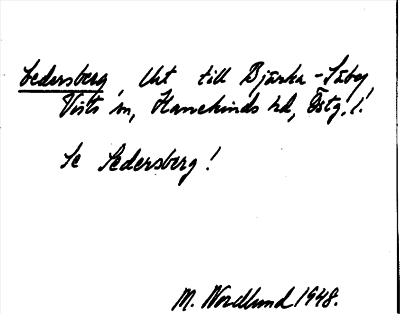 Cedersberg, Utt till Bjärka-Säby
Vists sn, Hanekinds hd, Östg. l.
Se Sedersberg!
M. Nordlund 1948.